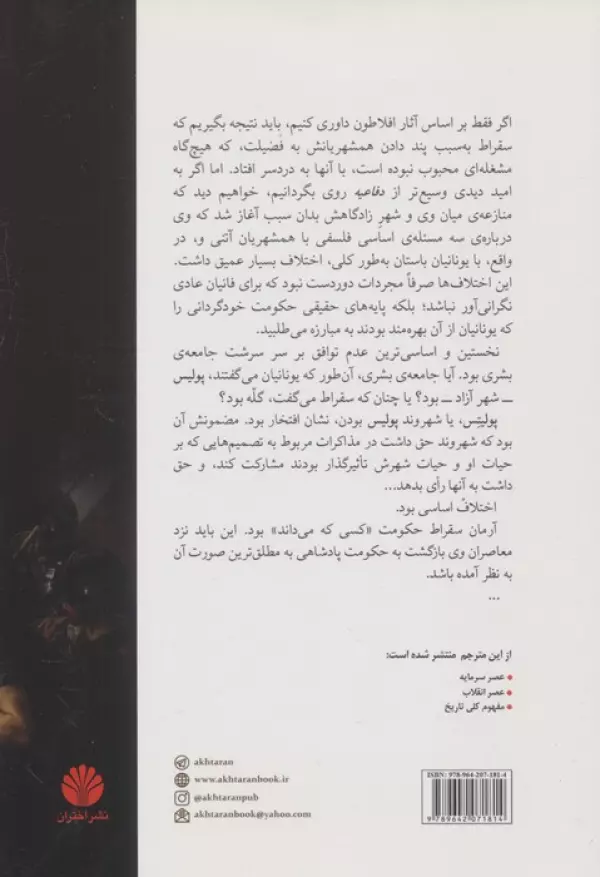 اگر فقط بر اساس آثار افلاطون داوری کنیم، باید نتیجه بگیریم که
سقراط به‌سبب پند دادن همشهریانش به فضیلت، که هیچ‌گاه
مشغله‌ای محبوب نبوده است، با آنها به دردسر افتاد. اما اگر به
امید دیدی وسیع‌تر از دفاعیه روی بگردانیم، خواهیم دید که
منازعه‌ی میان وی و شهرِ زادگاهش بدان سبب آغاز شد که وی
درباره‌ی سه مسئله‌ی اساسی فلسفی با همشهریان آتنی و، در
واقع، با یونانیان باستان به‌طور کلی، اختلاف بسیار عمیق داشت.
این اختلاف‌ها صرفاً مجردات دوردست نبود که برای فانیان عادی
نگرانی‌آور نباشد؛ بلکه پایه‌های حقیقی حکومت خودگردانی را
که یونانیان از آن بهره‌مند بودند به مبارزه می‌طلبید.
نخستین و اساسی‌ترین عدم توافق بر سر سرشت جامعه‌ی
بشری بود. آیا جامعه‌ی بشری، آن‌طور که یونانیان می‌گفتند، پولیس
ــ شهر آزاد ــ بود؟ یا چنان که سقراط می‌گفت، گلّه بود؟
پولیتِس، یا شهروند پولیس بودن، نشان افتخار بود. مضمونش آن
بود که شهروند حق داشت در مذاکرات مربوط به تصمیم‌هایی که بر
حیات او و حیات شهرش تأثیرگذار بودند مشارکت کند، و حق
داشت به آنها رأی بدهد...
اختلافْ اساسی بود.
آرمان سقراط حکومت «کسی که می‌داند» بود. این باید نزد
معاصران وی بازگشت به حکومت پادشاهی به مطلق‌ترین صورت آن
به نظر آمده باشد.
...
از این مترجم منتشر شده است:
• عصر سرمایه
• عصر انقلاب
• مفهوم کلی تاریخ
akhtaran
www.akhtaranbook.ir
@akhtaranpub
akhtaranbook@yahoo.com
ISBN: 978-964-207-181-4
9789642071814
نشر اختران